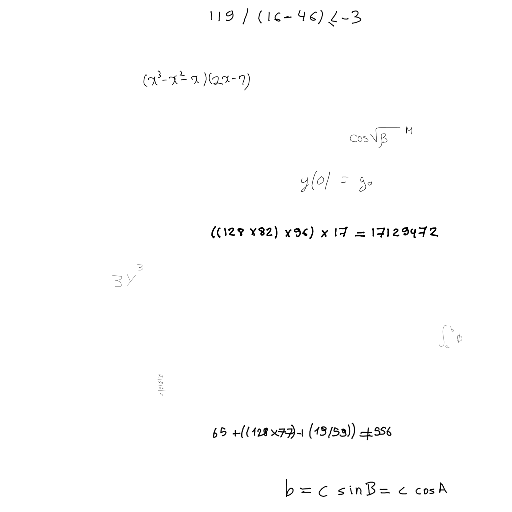 119 / (16 - 46) < -3
(x³ - x² - x)(2x - 7)
cos√β M
y(0) = y₀
((128 × 82) × 96) × 17 = 17129472
3y³
65 + ((128 × 77) + (19/59)) ≠ 956
b = c sin B = c cos A